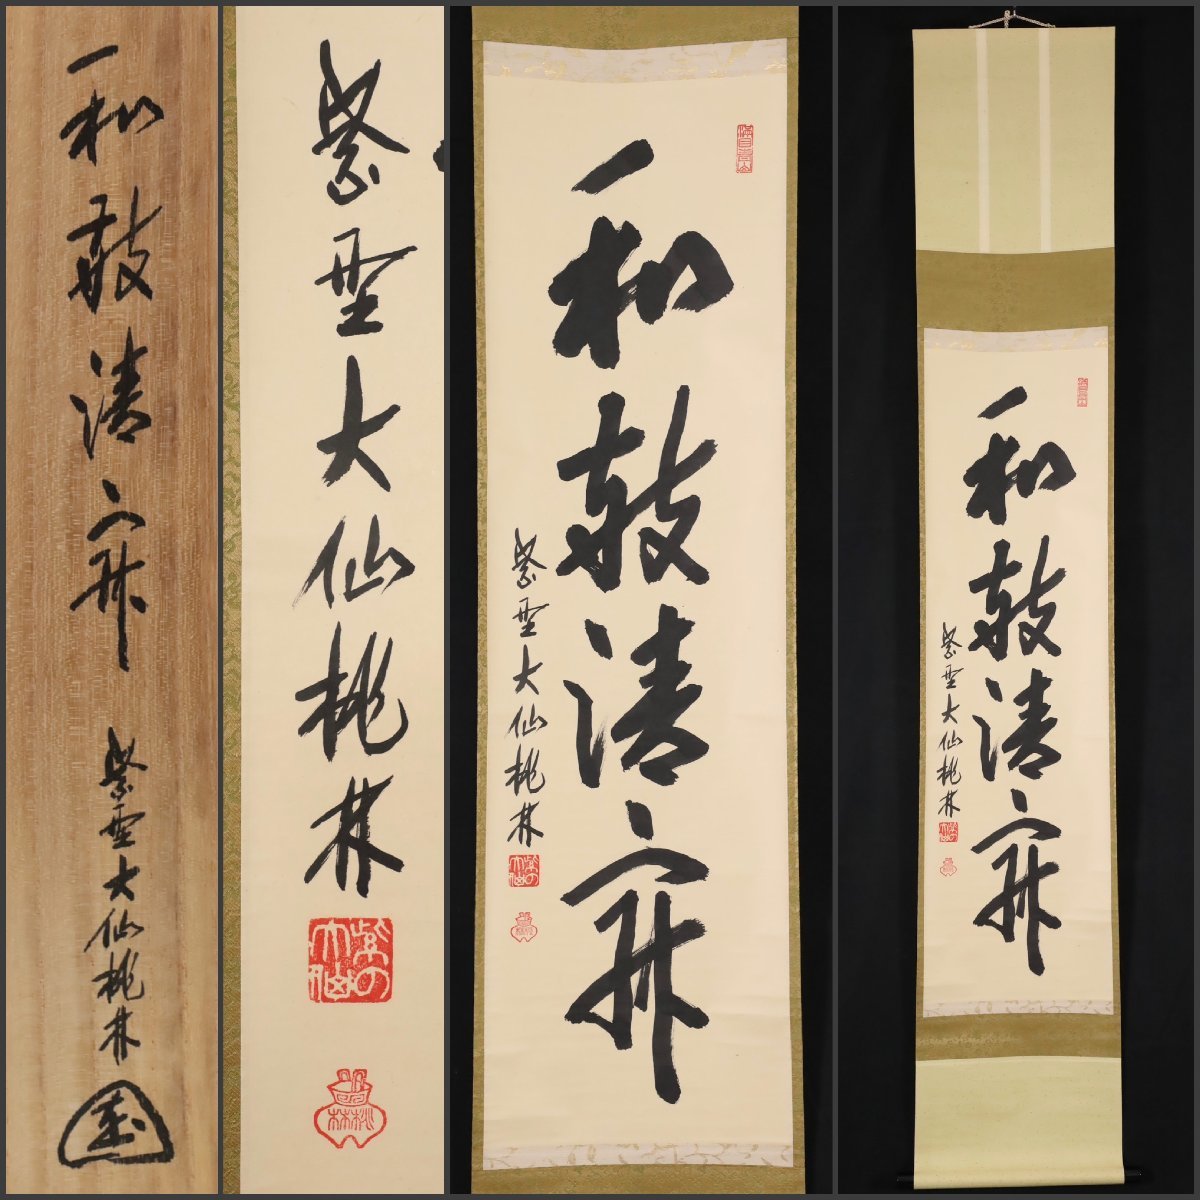 和敬清寂
紫野大仙桃林
紫野大仙桃林
和敬清寂
紫野大仙桃林
和敬清寂
紫野大仙桃林